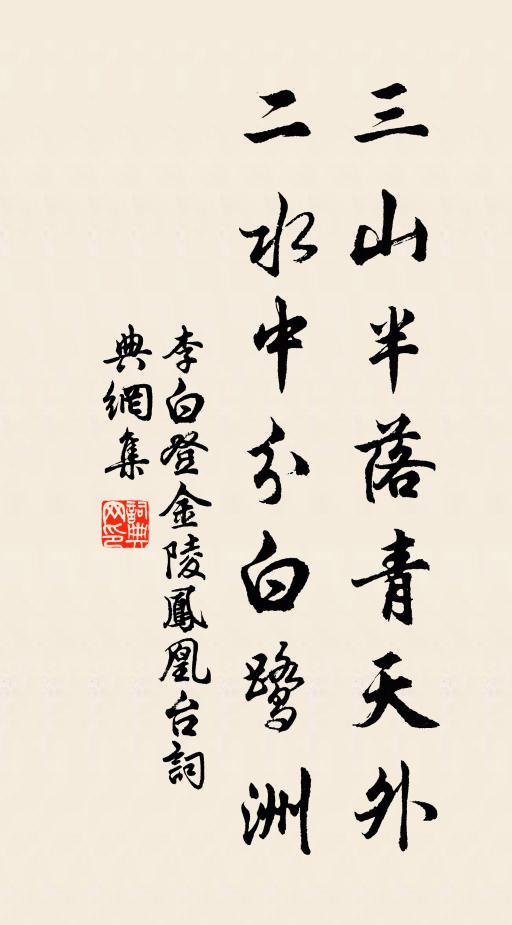 三山半落青天外
二水中分白鷺洲
李白登金陵鳳凰台詞
典網集
詞典
网印